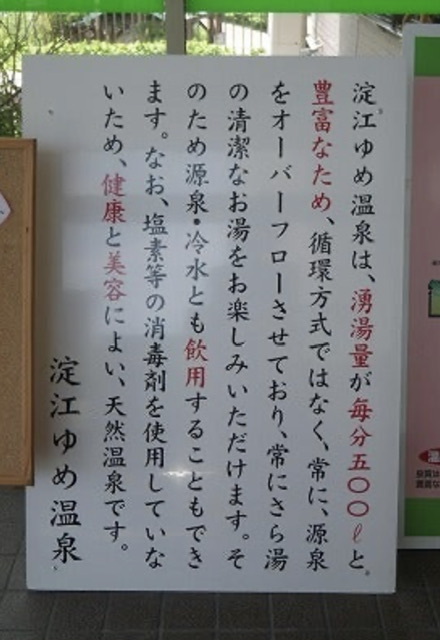 淀江ゆめ温泉は、湧湯量が毎分五〇〇ℓと
豊富なため、循環方式ではなく、常に、源泉
をオーバーフローさせており、常にさら湯
の清潔なお湯をお楽しみいただけます。そ
のため源泉・冷水とも飲用することもでき
ます。なお、塩素等の消毒剤を使用していな
いため、健康と美容によい、天然温泉です。
淀江ゆめ温泉